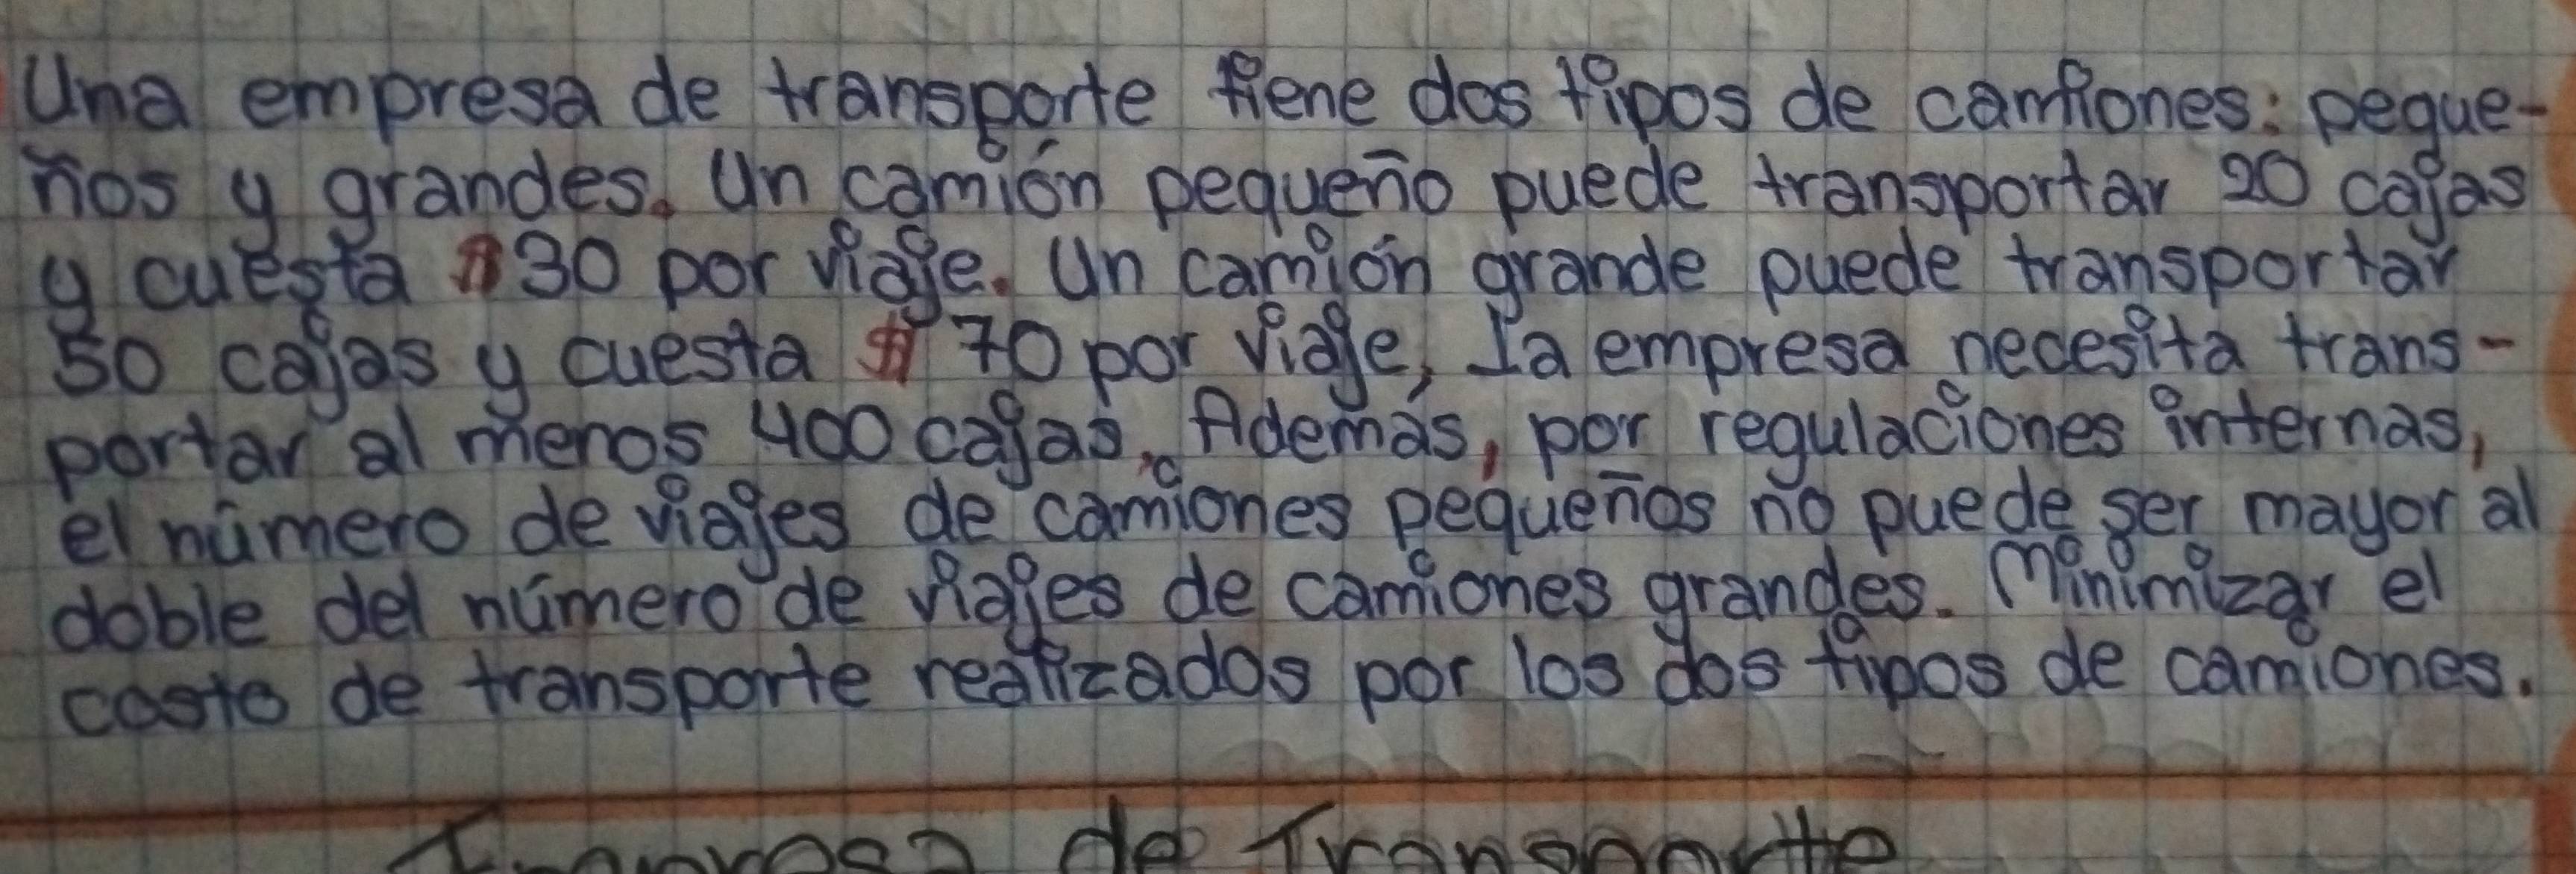 Una empresa de transporte tiene dos tipos de camiones: peque-
ños y grandes. Un camión pequeño puede transportar 20 cajas
y cuesta $30 por viaje. Un camión grande puede transportar
50 cajas y cuesta $70 por viaje, La empresa necesita trans-
portar al menos 400 cajas. Además, por regulaciones internas,
el número de viajes de camiones pequeños no puede ser mayor al
doble del número de viajes de camiones grandes. Minimizar el
costo de transporte realizados por los dos tipos de camiones.
de Transporte